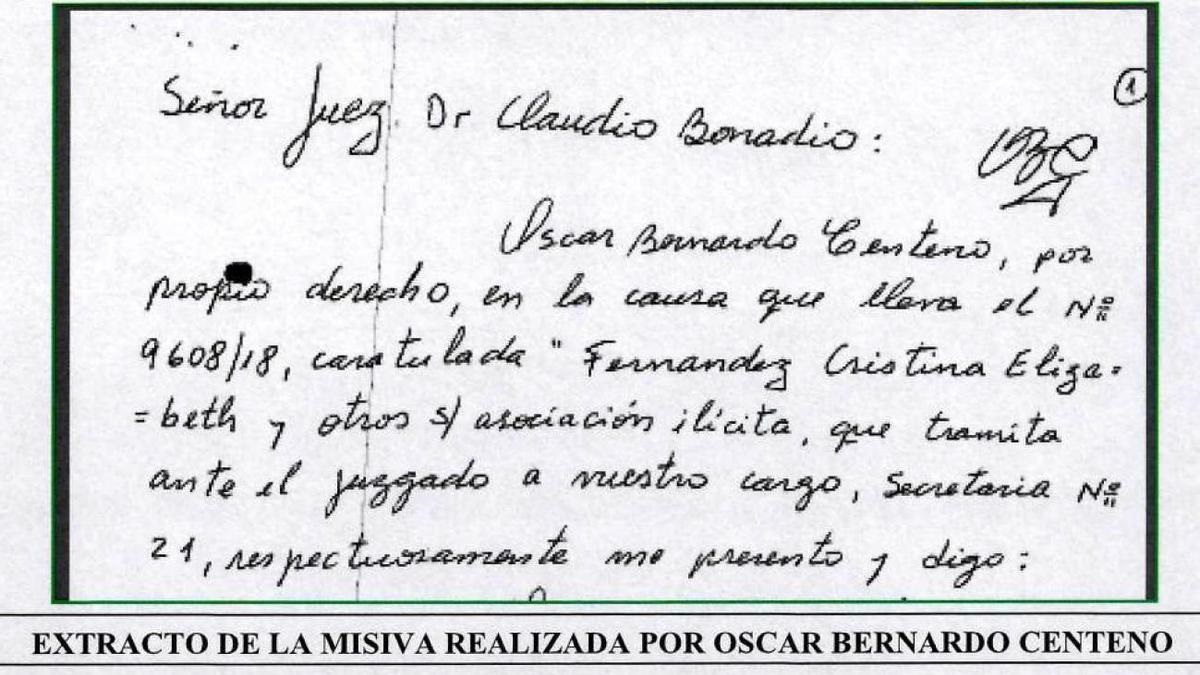 1
Señor Juez. Dr Claudio Bonadio:
OBC
Oscar Bernardo Centeno, por
propio derecho, en la causa que lleva el Nº
9608/18, caratulada " Fernandez Cristina Eliza=
=beth y otros s/ asociación ilícita, que tramita
ante el juzgado a vuestro cargo, Secretaria Nº
21, respectuosamente me presento y digo:
EXTRACTO DE LA MISIVA REALIZADA POR OSCAR BERNARDO CENTENO